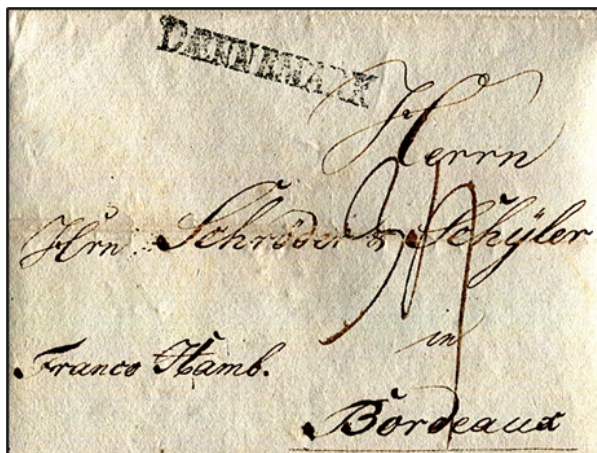 DÆNNEMARK
Herrn
Hrn. Schröder & Schÿler
in
Franco Hamb.
Bordeaux